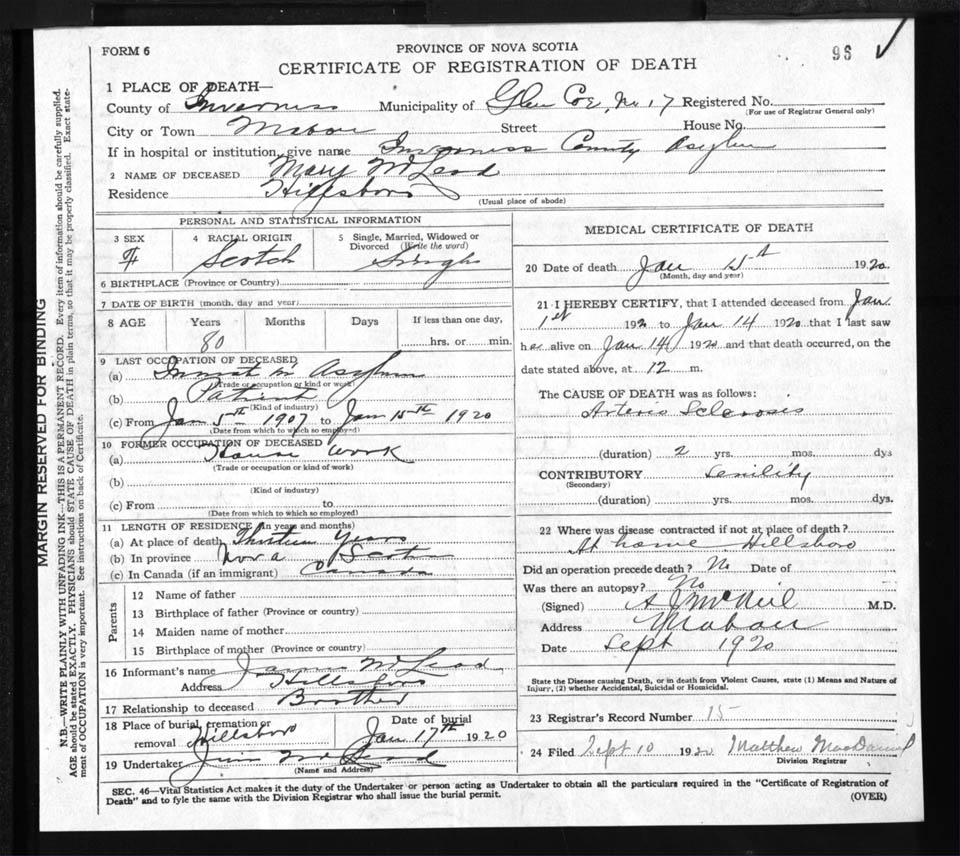 FORM 6
PROVINCE OF NOVA SCOTIA
96
CERTIFICATE OF REGISTRATION OF DEATH
1 PLACE OF DEATH—
County of Inverness Municipality of Glen Coe, No. 17 Registered No.
(For use of Registrar General only)
City or Town Mabou Street House No.
If in hospital or institution, give name Inverness County Asylum
2 NAME OF DECEASED Mary McLeod
Residence Hillsboro
(Usual place of abode)
PERSONAL AND STATISTICAL INFORMATION
3 SEX 4 RACIAL ORIGIN 5 Single, Married, Widowed or Divorced (Write the word)
F Scotch Single
6 BIRTHPLACE (Province or Country)
7 DATE OF BIRTH (month, day and year)
8 AGE Years Months Days If less than one day,
80 hrs. or min.
9 LAST OCCUPATION OF DECEASED
(a) Inmate in Asylum
(Trade or occupation or kind of work)
(b) Patient
(Kind of industry)
(c) From Jan 5th 1907 to Jan 15th 1920
(Date from which to which so employed)
10 FORMER OCCUPATION OF DECEASED
(a) House work
(Trade or occupation or kind of work)
(b)
(Kind of industry)
(c) From to
(Date from which to which so employed)
11 LENGTH OF RESIDENCE (in years and months)
(a) At place of death Thirteen Years
(b) In province Nova Scotia
(c) In Canada (if an immigrant) Canada
Parents
12 Name of father
13 Birthplace of father (Province or country)
14 Maiden name of mother
15 Birthplace of mother (Province or country)
16 Informant's name James McLeod
Address Hillsboro
17 Relationship to deceased Brother
18 Place of burial, cremation or removal Hillsboro Date of burial Jan 17th 1920
19 Undertaker Jim McLeod
(Name and Address)
MEDICAL CERTIFICATE OF DEATH
20 Date of death Jan 15th 1920
(Month, day and year)
21 I HEREBY CERTIFY, that I attended deceased from Jan.
1st 1920 to Jan 14 1920 that I last saw
her alive on Jan 14 1920 and that death occurred, on the
date stated above, at 12 m.
The CAUSE OF DEATH was as follows:
Arterio Sclerosis
(duration) 2 yrs. mos. dys
CONTRIBUTORY Senility
(Secondary)
(duration) yrs. mos. dys.
22 Where was disease contracted if not at place of death?
At home Hillsboro
Did an operation precede death? No Date of
Was there an autopsy? No
(Signed) A J McNeil M.D.
Address Mabou
Date Sept 1920
State the Disease causing Death, or in death from Violent Causes, state (1) Means and Nature of
Injury, (2) whether Accidental, Suicidal or Homicidal.
23 Registrar's Record Number 15
24 Filed Sept 10 1920 Matthew MacDaniel
Division Registrar
SEC. 46—Vital Statistics Act makes it the duty of the Undertaker or person acting as Undertaker to obtain all the particulars required in the "Certificate of Registration of
Death" and to fyle the same with the Division Registrar who shall issue the burial permit.
(OVER)
MARGIN RESERVED FOR BINDING
N.B.—WRITE PLAINLY WITH UNFADING INK—THIS IS A PERMANENT RECORD. Every item of information should be carefully supplied.
AGE should be stated EXACTLY. PHYSICIANS should STATE CAUSE OF DEATH in plain terms, so that it may be properly classified. Exact state-
ment of OCCUPATION is very important. See instructions on back of Certificate.